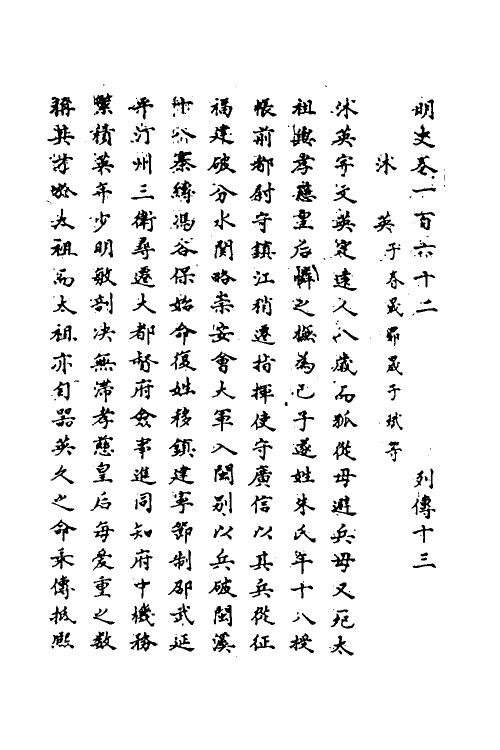 明史卷一百六十二　列傳十三
沐英子春晟昻晟子斌等
沐英字文英定遠人八歲而孤從母避兵母又死太
祖與孝慈皇后憐之撫為己子遂姓朱氏年十八授
帳前都尉守鎮江稍遷指揮使守廣信以其兵從征
福建破分水関略崇安會大軍入閩別以兵破閩溪
十八寨縛馮谷保始命復姓移鎮建寧節制邵武延
平汀州三衛尋遷大都督府僉事進同知府中機務
繁積英年少明敏剖决無滯孝慈皇后每愛重之数
稱其才於太祖而太祖亦自器英久之命乘傳抵熙